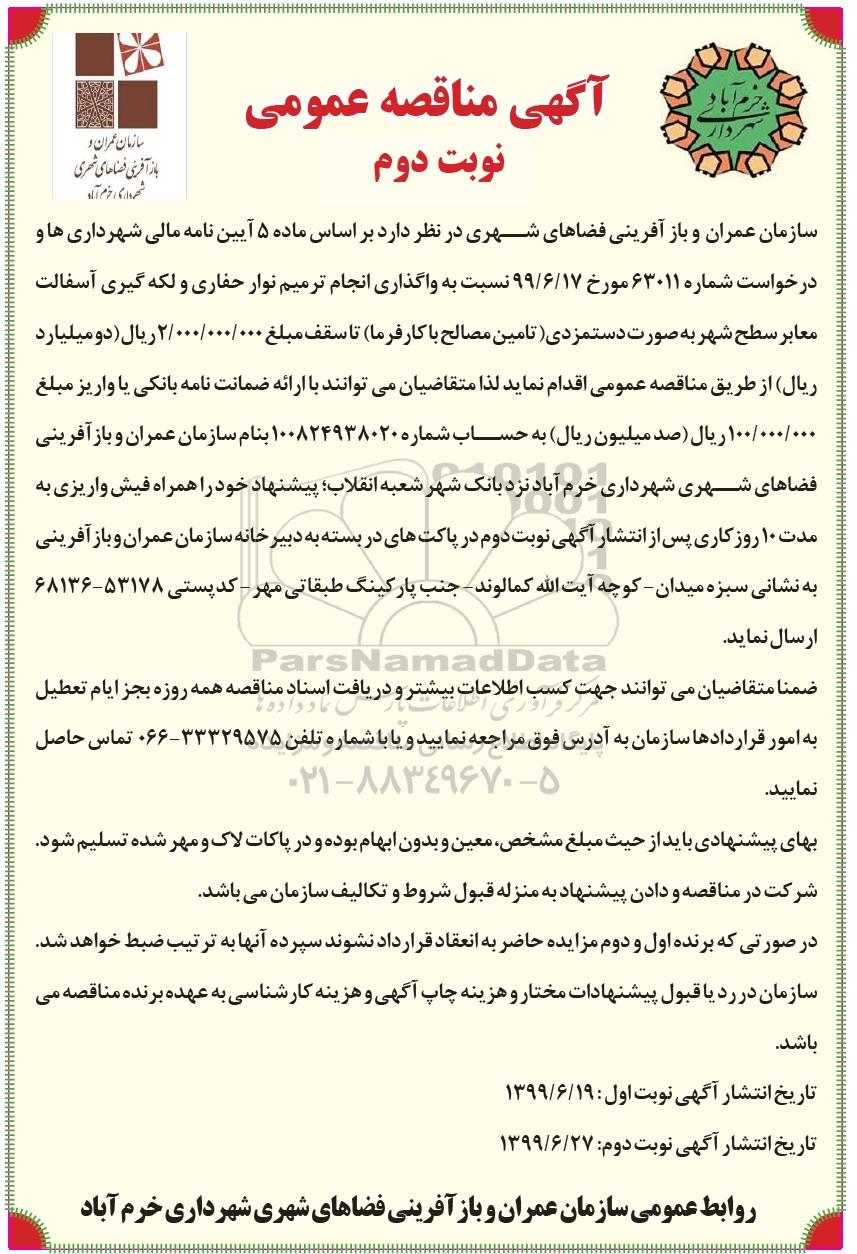 سازمان عمران و
باز آفرینی فضاهای شهری
شهرداری خرم آباد
خرم آباد
شهرداری
آگهی مناقصه عمومی
نوبت دوم
سازمان عمران و باز آفرینی فضاهای شـــهری در نظر دارد بر اساس ماده ۵ آیین نامه مالی شهرداری ها و
درخواست شماره ۶۳۰۱۱ مورخ ۹۹/۶/۱۷ نسبت به واگذاری انجام ترمیم نوار حفاری و لکه گیری آسفالت
معابر سطح شهر به صورت دستمزدی( تامین مصالح با کارفرما) تا سقف مبلغ ۲/۰۰۰/۰۰۰/۰۰۰ ریال(دو میلیارد
ریال) از طریق مناقصه عمومی اقدام نماید لذا متقاضیان می توانند با ارائه ضمانت نامه بانکی یا واریز مبلغ
۱۰۰/۰۰۰/۰۰۰ ریال (صد میلیون ریال) به حســـاب شماره ۱۰۰۸۲۴۹۳۸۰۲۰ بنام سازمان عمران و باز آفرینی
فضاهای شـــهری شهرداری خرم آباد نزد بانک شهر شعبه انقلاب؛ پیشنهاد خود را همراه فیش واریزی به
مدت ۱۰ روز کاری پس از انتشار آگهی نوبت دوم در پاکت های در بسته به دبیرخانه سازمان عمران و باز آفرینی
به نشانی سبزه میدان - کوچه آیت الله کمالوند- جنب پارکینگ طبقاتی مهر - کد پستی ۵۳۱۷۸-۶۸۱۳۶
ارسال نماید.
ParsNamadData
ضمنا متقاضیان می توانند جهت کسب اطلاعات بیشتر و دریافت اسناد مناقصه همه روزه بجز ایام تعطیل
مرکز فرآوری اطلاعات پارس نماد داده ها
به امور قراردادها سازمان به آدرس فوق مراجعه نمایید و یا با شماره تلفن ۳۳۳۲۹۵۷۵-۰۶۶ تماس حاصل
نمایید.
۰۲۱-۸۸۳۴۹۶۷۰-۵
بهای پیشنهادی باید از حیث مبلغ مشخص، معین و بدون ابهام بوده و در پاکات لاک و مهر شده تسلیم شود.
شرکت در مناقصه و دادن پیشنهاد به منزله قبول شروط و تکالیف سازمان می باشد.
در صورتی که برنده اول و دوم مزایده حاضر به انعقاد قرارداد نشوند سپرده آنها به ترتیب ضبط خواهد شد.
سازمان در رد یا قبول پیشنهادات مختار و هزینه چاپ آگهی و هزینه کارشناسی به عهده برنده مناقصه می
باشد.
تاریخ انتشار آگهی نوبت اول : ۱۳۹۹/۶/۱۹
تاریخ انتشار آگهی نوبت دوم: ۱۳۹۹/۶/۲۷
روابط عمومی سازمان عمران و باز آفرینی فضاهای شهری شهرداری خرم آباد